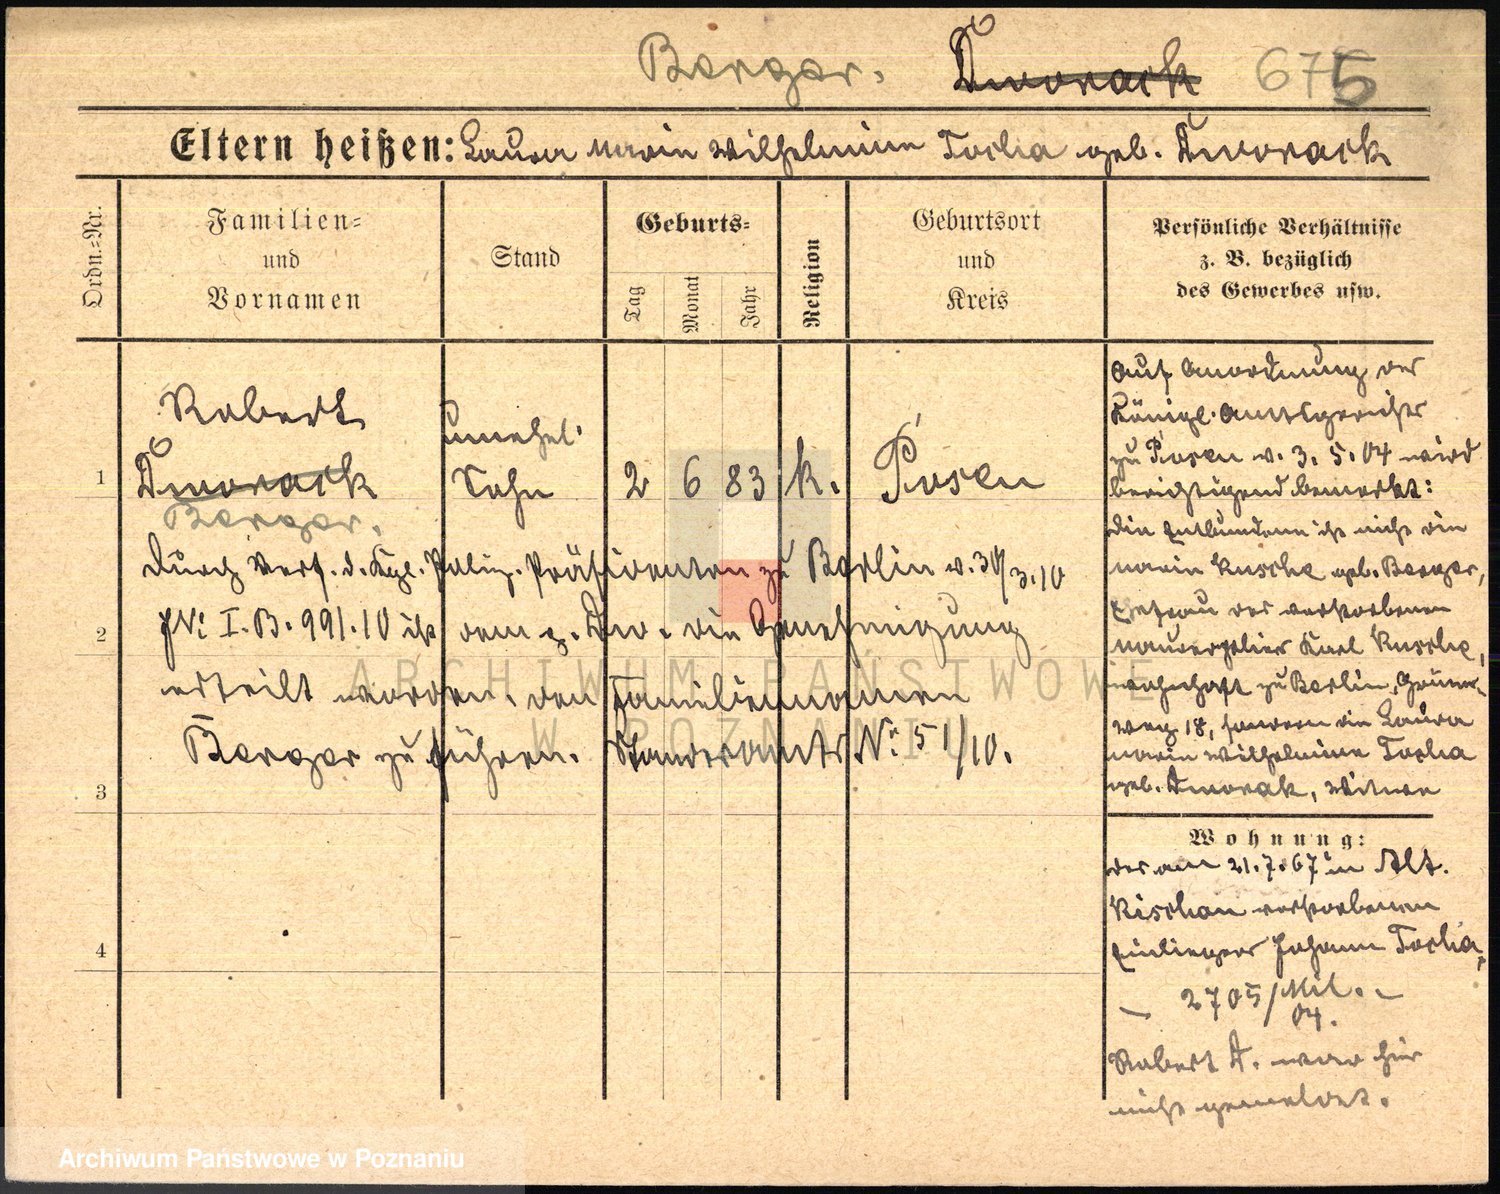 Berger. Dworack 675
Eltern heißen: Laura Marie Wilhelmine Toclia geb. Dworack
Ordn.-Nr.
Familien-
und
Vornamen
Stand
Geburts-
Tag
Monat
Jahr
Religion
Geburtsort
und
Kreis
Persönliche Verhältnisse
z. B. bezüglich
des Gewerbes usw.
Robert
1 Dworack
Berger.
unehel.
Sohn
2 6 83 k. Posen
durch Verf. d. Kgl. Poliz. Präsidenten zu Berlin v. 30/3.10
2 J№ I.B.991.10 ist dem p. Dw. die Genehmigung
erteilt worden, den Familiennamen
Berger zu führen. Standesamts №: 51/10.
3
4
Auf Anordnung des
Königl. Amtsgerichts
zu Posen v. 3.5.04 wird
berichtigend bemerkt:
die Entbundene ist nicht die
Marie Kusche geb. Berger,
Ehefrau des verstorbenen
Maurerpolier Karl Kusche,
wohnhaft zu Berlin, Grüner-
weg 18, sondern die Laura
Marie Wilhelmine Toclia
geb. Dworak, Witwe
Wohnung:
des am 21.7.67 in Alt.
verstorbenen
Einlieger Johann Toclia,
– 2705/Mil. –
04.
Robert D. war hier
nicht gemeldet.
ARCHIWUM PAŃSTWOWE
W POZNANIU
Archiwum Państwowe w Poznaniu